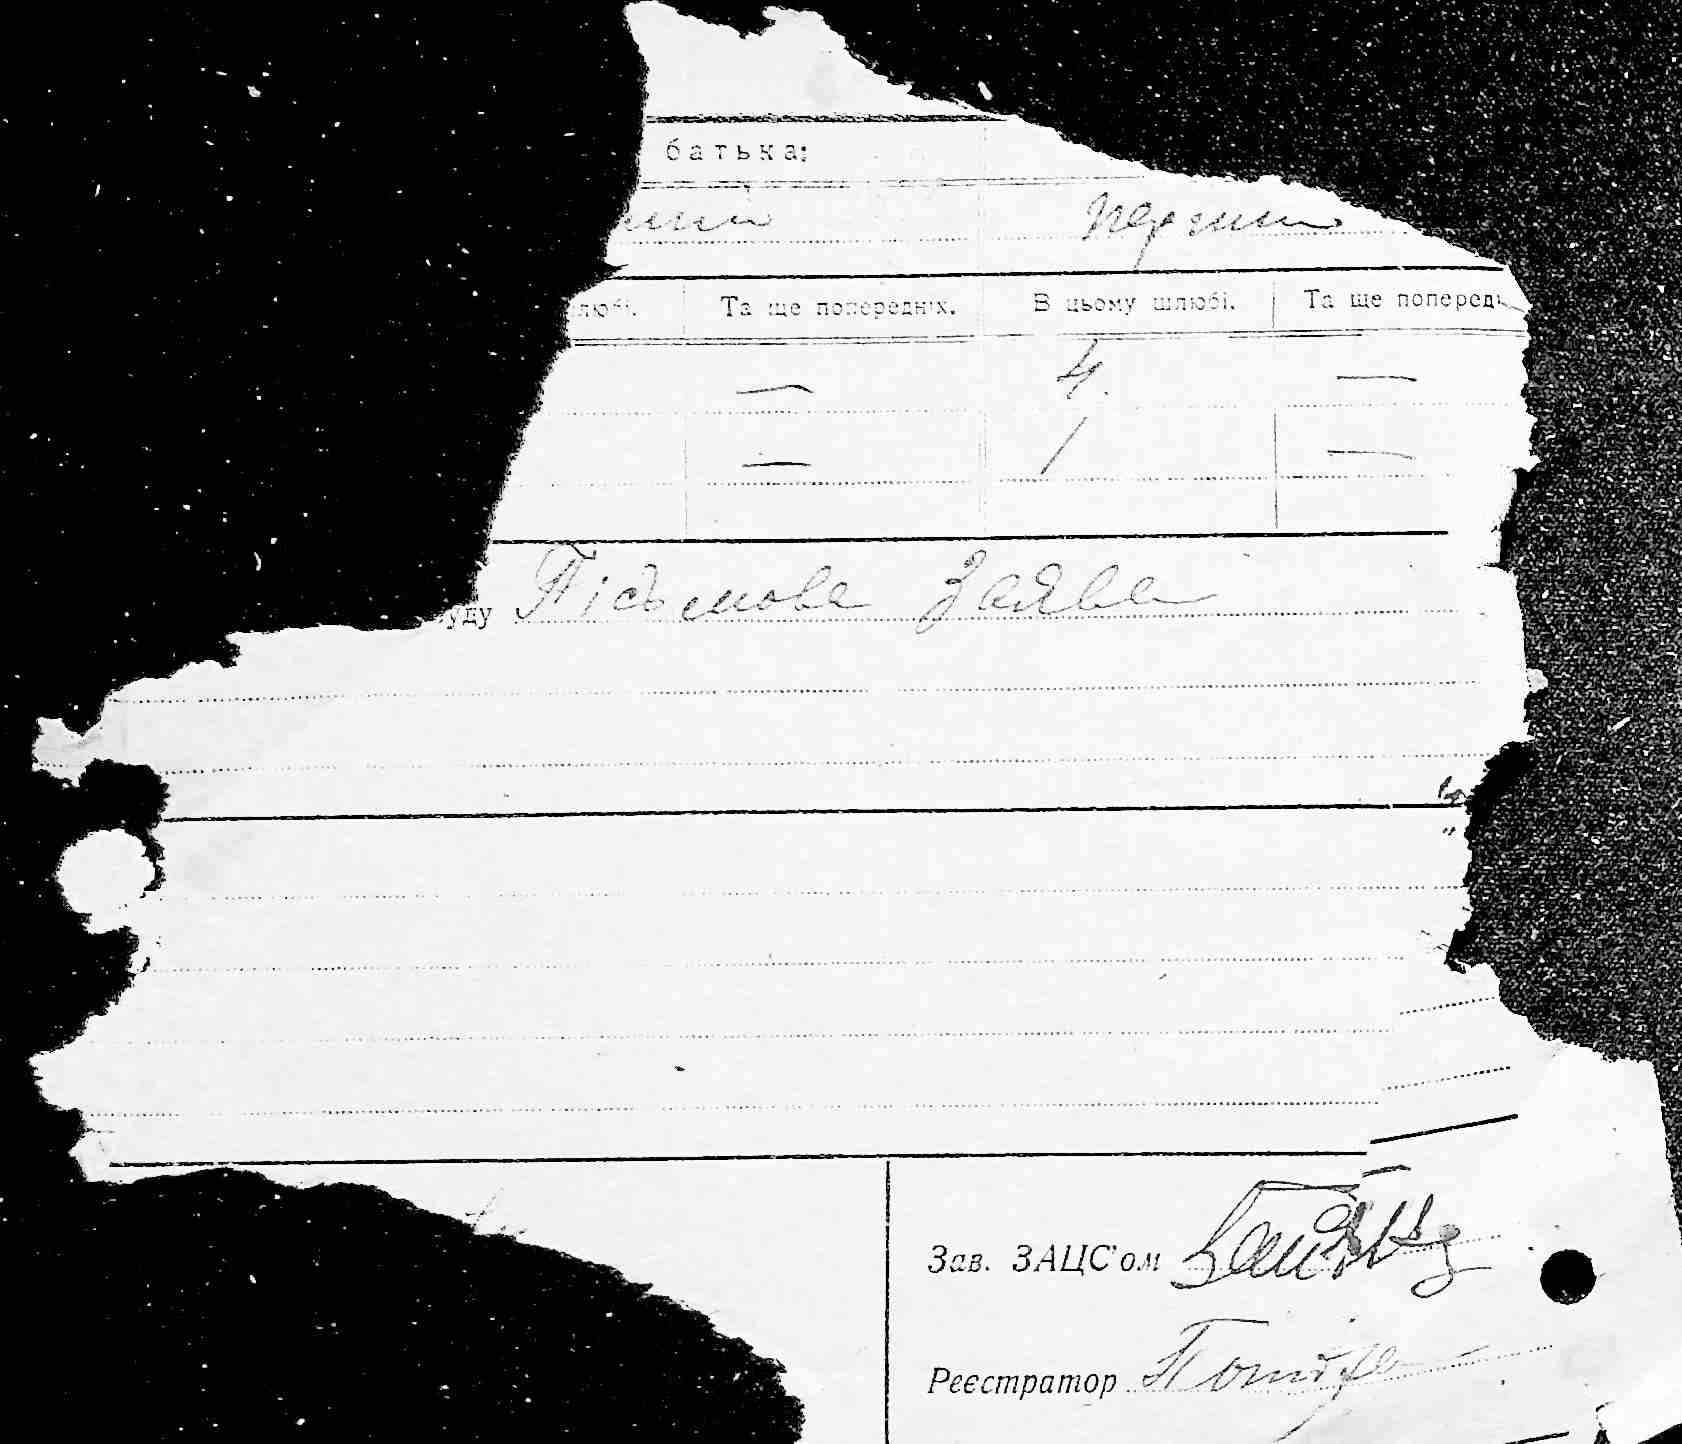 батька:
перший
любі. Та ще попередніх. В цьому шлюбі. Та ще попередн
— 4. —
— 1 —
уду Підьмова Заява
Зав. ЗАЦС'ом
Реєстратор